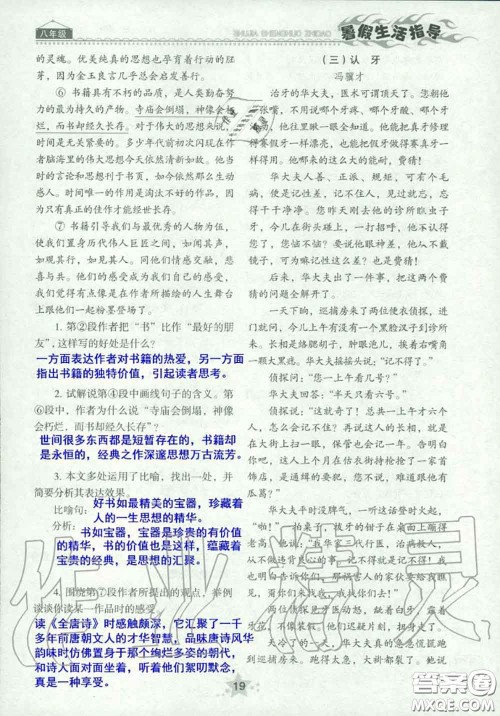 八年级
暑假生活指导
的灵魂。优美纯真的思想也孕育着行动的胚
芽，因为金玉良言几乎总会启发善行。
⑥ 书籍具有不朽的品质，是人类勤奋努力
的最为持久的产物。寺庙会倒塌，神像会朽
烂，而书却经久长存。对于伟大的思想来说，
时间是无关紧要的。多少年代前初次闪现在作
者脑海里的伟大思想今天依然清新如故。他
们当时的言论和思想刊于书页，如今依然那么生
动感人。时间唯一的作用是淘汰不好的作品，因为
只有真正的佳作才能经世长存。
⑦ 书籍引导我们与最优秀的人物为伍，使
我们置身历代伟人巨匠之间，如闻其声，如
观其行，如见其人。同他们情感交融，悲喜
与共。他们的感受成为我们自己的感受，我们
觉得有点儿像是在作者所描绘的人生舞台
上跟他们一起粉墨登场了。
1. 第②段作者把“书”比作“最好的朋
友”，这样写的好处是什么？
一方面表达作者对书籍的热爱，另一方面
指出书籍的独特价值，引起读者思考。
2. 试解说第④段中画线句子的含义。第
⑥段中，作者为什么说“寺庙会倒塌，神像会
朽烂，而书却经久长存”？
世间很多东西都是短暂存在的，书籍却
是永恒的，经典之作深邃思想万古流芳。
3. 本文多处运用了比喻，找出一处，并
简要分析其表达效果。
比喻句：好书如最精美的宝器，珍藏着
人的一生思想的精华。
分析：书如宝器，宝器是珍贵的有价值
的，书的价值也是这样，蕴藏着
宝贵的经典，是思想的汇聚。
4. 围绕第⑦段作者所提出的观点，举例
谈谈你读某一作品时的感受。
读《全唐诗》时感触颇深，它汇聚了一千
多年前唐朝文人的才华智慧，品味唐诗风华
韵味时仿佛置身于那个绚烂多姿的朝代，
和诗人面对面坐着，听着他们絮叨歌念，
真是一种享受。
（三）认 牙
冯骥才
治牙的华大夫，医术可谓顶天了。您朝他
一张嘴，
牙就能和真牙修理得
赛假牙一样漂亮，也能把假牙做得赛真牙一样
得用。他哪来的这么大的能耐，费猜！
华大夫人善、正派、规矩，可有个毛
病，便是记性差，记不住人，见过就忘，忘
得干干净净。您昨天刚去他的诊所瞧虫子
牙，今儿在街头碰上，一打招呼，他不认得
您了，您恼不恼？要说他眼神差，他从不戴
镜子，可为嘛记性这么差？也是费猜！
后来，华大夫出了一件事，把这两个费
猜的问题全解开了。
一天下晌，巡捕房来了两位便衣侦探，进
门就问，今儿上午有没有一个黑脸汉子到诊所
来？长络腮胡子，肿眼泡儿，挨着右嘴角
一颗大黑痣。华大夫摇摇头说：“记不得了。”
侦探问：“您一上午看几号？”
华大夫回答：“半天只看六号。”
侦探说：“这就奇了！总共一上午才六个人，
怎么会记不住？再说这人的长相，就是在大
街上扫一眼，保管也会记一年。告明白
你吧，这人上个月在估衣街持枪抢了一家首
饰店，是通缉的要犯，您不说，难道跟他有
瓜葛？”
华大夫平时没脾气，一听这话登时火
起，“啪！”一拍桌子，拔牙的钳子在桌面上蹦得
老高。他说：“我华家三代行医，治病救人，从
不做违背良心的事。记不得就是记不得！我也
明白告诉你们，那祸害人的家伙要给我瞧见，
甭你们来找我，我找你们去！”
两位侦探见牙医动怒，龇着白牙，露着
牙花，不像装假。他们迟疑片刻，扭身走了。
天冷了的一天，华大夫真的急急慌慌跑
到巡捕房来。跑得太急，大褂都裂了。他说
19
答案圈
MXQE.COM